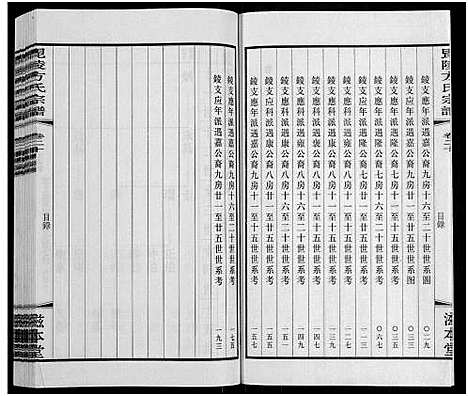 毘陵方氏宗譜 卷二十 目錄 滋本堂
錂支應年派遇嘉公裔九房十六至二十世世系圖 〇二九
錂支应年派遇嘉公裔九房廿一至廿五世世系图 〇三五
錂支應年派遇隆公裔七房十六至二十世世系考 〇六七
錂支应年派遇隆公裔七房廿一至廿五世世系考 一二七
錂支應科派遇康公裔八房十一至十五世世系考 一四七
錂支應科派遇康公裔八房十六至二十世世系考 一四九
錂支应科派遇康公裔八房廿一至廿五世世系考 一五一
錂支應年派遇嘉公裔九房十一至十五世世系考 一五七
錂支應年派遇嘉公裔九房十六至二十世世系考 一七五
錂支应年派遇嘉公裔九房廿一至廿五世世系考 一九三
目錄
毘陵方氏宗譜
滋本堂